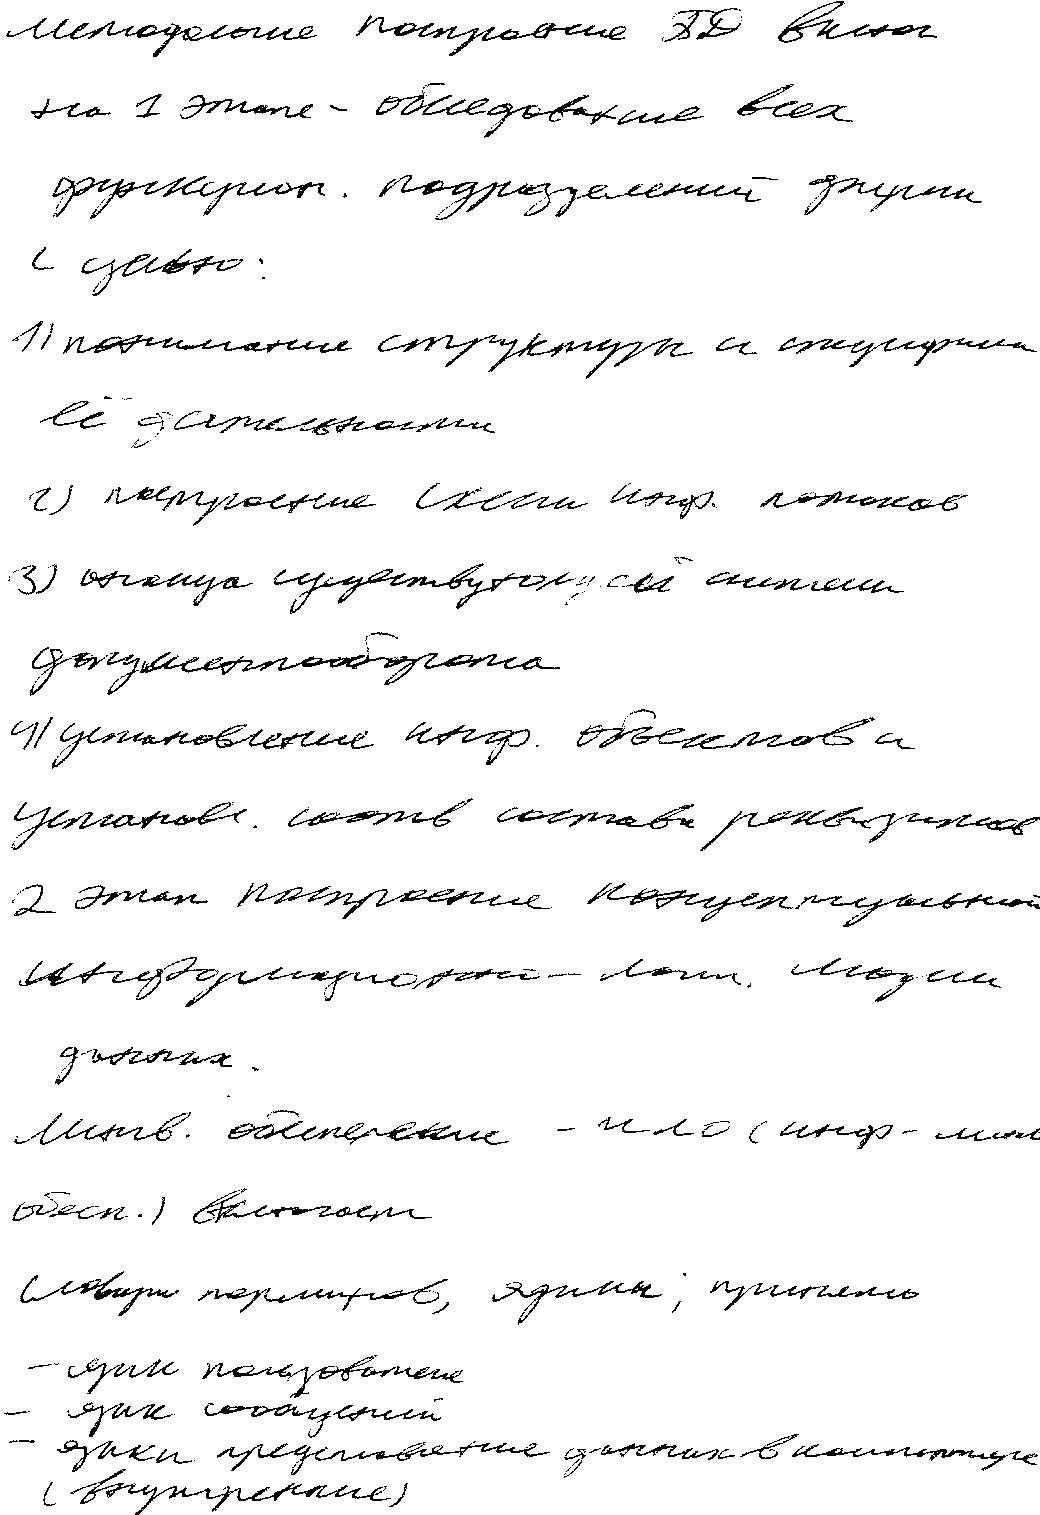 Методология построение БД включ
на 1 этапе - обследование всех
функцион. подразделений фирмы
с целью:
1) понимание структуры и специфики
её деятельности
2) построение схемы инф. потоков
3) анализа существующей системы
документооборота
4) установление инф. объектов и
установл. состав реквизитов
2 этап построение концептуальной
информационно- логич. модели
данных.
Лингв. обеспечение - ИЛО (инф- линг
обесп.) включает
Словари терминов, языки,
- язык пользователе
- язык сообщений
- языки представление данных в компьютере
(внутренние)